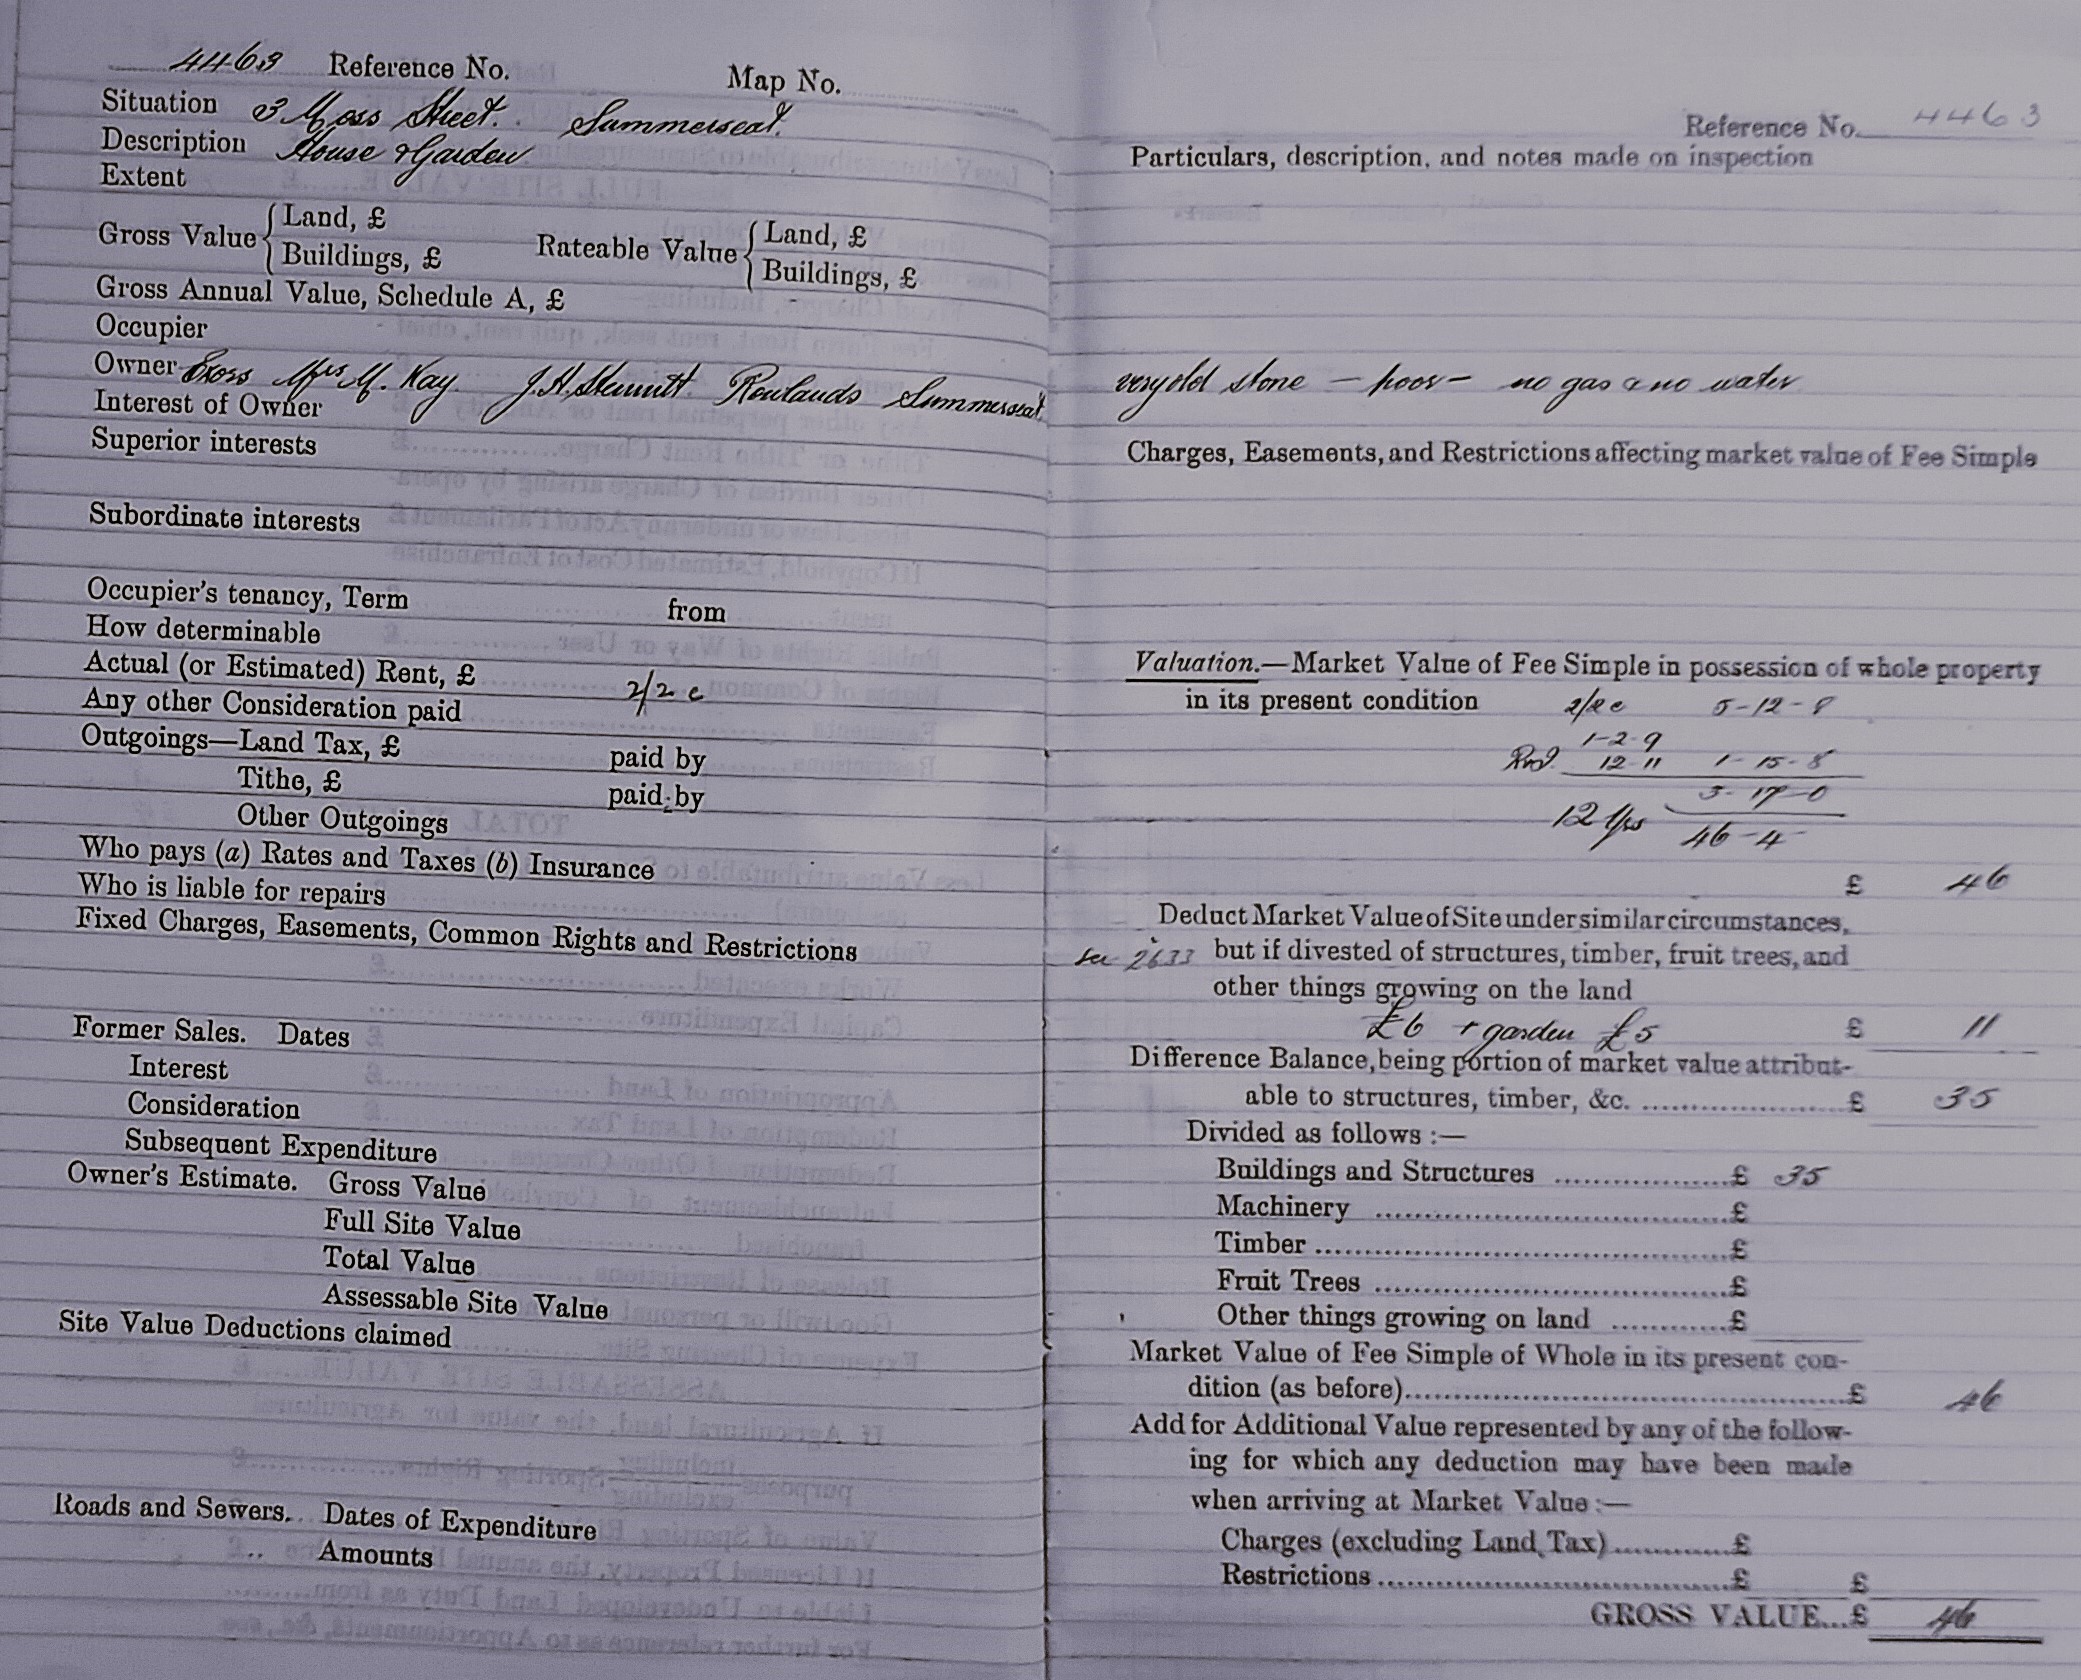 4463 Reference No. Map No.
Situation 3 Moss Street. Summerseat.
Description House & Garden
Extent
Gross Value { Land, £ Rateable Value { Land, £
Buildings, £ Buildings, £
Gross Annual Value, Schedule A, £
Occupier
Owner Exors Mrs M. Kay J.H. Rowlands Summerseat
Interest of Owner
Superior interests
Subordinate interests
Occupier's tenancy, Term from
How determinable
Actual (or Estimated) Rent, £ 2/2 c
Any other Consideration paid
Outgoings—Land Tax, £ paid by
Tithe, £ paid by
Other Outgoings
Who pays (a) Rates and Taxes (b) Insurance
Who is liable for repairs
Fixed Charges, Easements, Common Rights and Restrictions
Former Sales. Dates
Interest
Consideration
Subsequent Expenditure
Owner's Estimate. Gross Value
Full Site Value
Total Value
Assessable Site Value
Site Value Deductions claimed
Roads and Sewers. Dates of Expenditure
„ Amounts
Reference No. 4463
Particulars, description, and notes made on inspection
very old stone – poor – no gas & no water
Charges, Easements, and Restrictions affecting market value of Fee Simple
Valuation.—Market Value of Fee Simple in possession of whole property
in its present condition 2/2 c 5-12-8
1-2-9
12-11 1-15-8
3-17-0
12 yrs 46-4
£ 46
Deduct Market Value of Site under similar circumstances,
see 2633 but if divested of structures, timber, fruit trees, and
other things growing on the land
£6 + garden £5 £ 11
Difference Balance, being portion of market value attribut-
able to structures, timber, &c. .................... £ 35
Divided as follows :—
Buildings and Structures .................. £ 35
Machinery .................................... £
Timber .......................................... £
Fruit Trees .................................... £
Other things growing on land ............ £
Market Value of Fee Simple of Whole in its present con-
dition (as before).................................................. £ 46
Add for Additional Value represented by any of the follow-
ing for which any deduction may have been made
when arriving at Market Value :—
Charges (excluding Land Tax) ............ £
Restrictions .................................... £ £
GROSS VALUE... £ 46